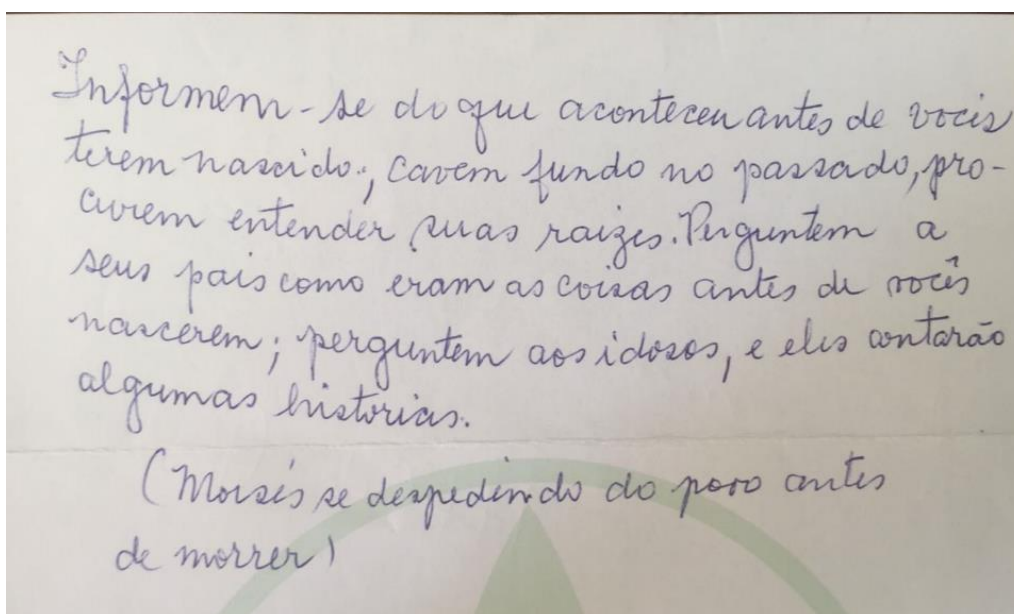 Informem-se do que aconteceu antes de vocês
terem nascido; cavem fundo no passado, pro-
curem entender suas raizes. Perguntem a
seus pais como eram as coisas antes de vocês
nascerem; perguntem aos idosos, e eles contarão
algumas historias.
(Moisés se despedindo do povo antes
de morrer)